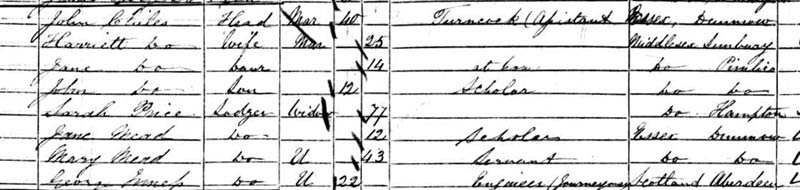 John Chiles Head Mar 40 Turncock (Assistant Essex, Dunmow
Harriett Do Wife Mar 25 Middlesex Sunbury
Jane Do Daur 14 at home Do Pimlico
John Do Son 12 Scholar Do Do
Sarah Price Lodger Widow 77 Do Hampton
Jane Mead Do 12 Scholar Essex Dunmow
Mary Mead Do U 43 Servant Do Do
George Do U 22 Engineer (Journeyman Scotland Aberdeen